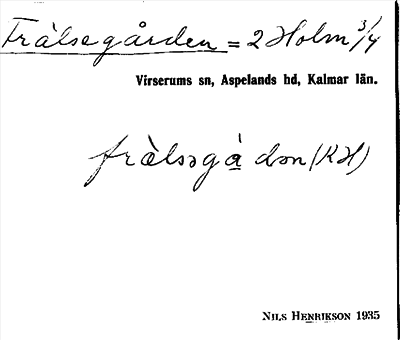 Frälsegården = 2 Holm 3/4
Virserums sn, Aspelands hd, Kalmar län.
fràlsəgá̱dən (KH)
NILS HENRIKSON 1935